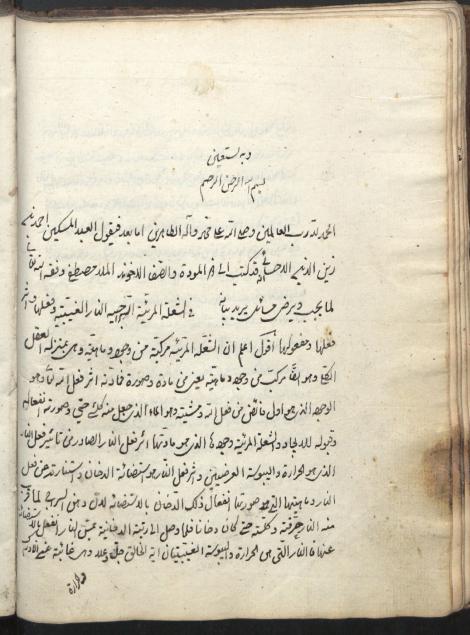 وبه نستعين
بسم الله الرحمن الرحيم
الحمد لله رب العالمين وصلى الله على محمد وآله الطاهرين اما بعد فيقول العبد المسكين احمد بن
زين الدين الاحسائي قد كتب الي المودة والصفا الاخوند الملا مصطفى وفقه الله
لما يحب ويرضى مسائل يريد بيانه في الشعلة المرئية النار الغيبية وفعلها واثر
فعلها ومفعولها اقول اعلم ان الشعلة المرئية مركبة من وجود وماهية وهي بمنزلة العقل
الكلي وهو ايضا مركب من وجود وماهية يعني من مادة وصورة فمادته اثر فعل الله تعالى وهو
الوجود الذي هو اول فائض من فعل الله ومشيته وهو الماء الذي جعل منه كل شيء حي وصورته انفعاله
وقبوله للايجاد والشعلة المرئية وجودها الذي هو مادتها اثر فعل النار الصادر من تاثير فعل النار
الذي هو الحرارة واليبوسة العرضيين واثر فعل النار هو استضائة الدخان واستنارته عن فعل
النار وماهيتها التي هي صورتها انفعال ذلك الدخان بالاستضائة لان دهن السراج لما قرب
منه النار حرقته وكلسته حتى كان دخانا فلما وصل الى رتبة الدخانية عن النار انفعل بالاستضائة
عنها فالنار التي هي الحرارة واليبوسة الغيبيتان اية الخالق جل وعلا وهي غائبة عن الادراك